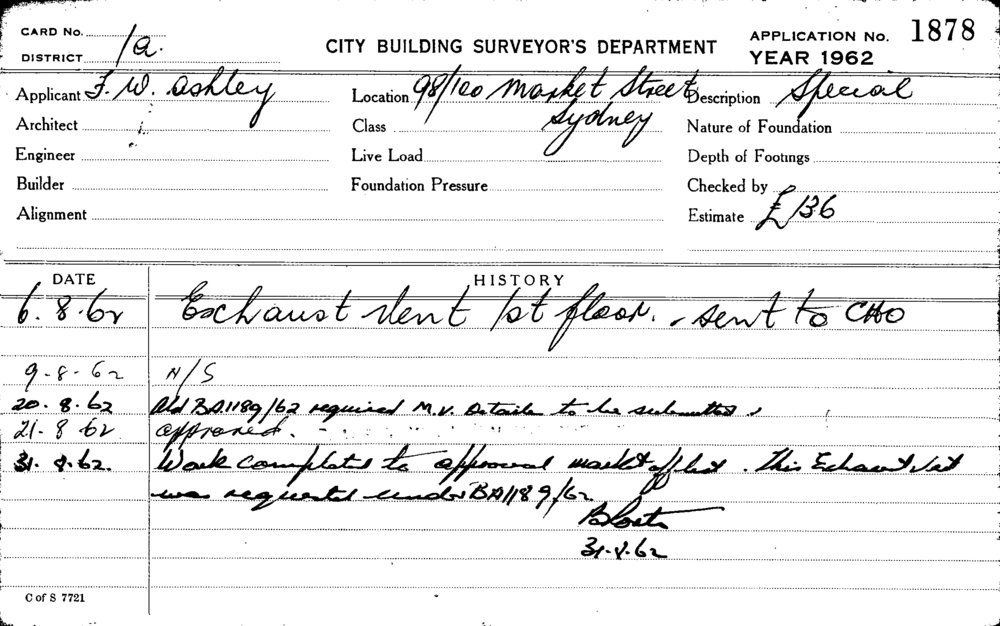 CARD No.
DISTRICT 1a.
CITY BUILDING SURVEYOR'S DEPARTMENT
APPLICATION No. 1878
YEAR 1962
Applicant F. W. Ashley Location 98/100 Market Street Description Special
Sydney
Architect Class Nature of Foundation
Engineer Live Load Depth of Footings
Builder Foundation Pressure Checked by
Alignment Estimate £136
DATE HISTORY
6.8.62 Exhaust Vent 1st floor. - sent to CHO
9-8-62 N/S
20.8.62 BA1189/62 required M.V. Details to be submitted
21-8 62 approved.
31.8.62. Work completed to approval market off list. This Exhaust Vent
was requested under BA1189/62
31-8-62
C of S 7721